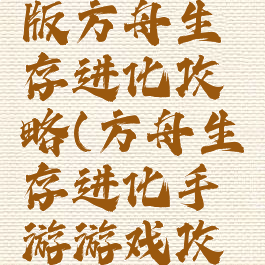 版方舟生
存进化攻
略(方舟生
存进化手
游游戏攻